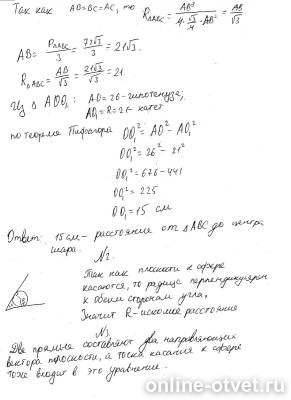 Так как AB=BC=AC, то R△ABC = AB³ / (4·√3/4·AB²) = AB/√3
AB = P△ABC/3 = 72√3/3 = 21√3.
R△ABC = AB/√3 = 21√3/√3 = 21.
Из △AOO₁: AO=26-гипотенуза;
AO₁=R=21- катет
по теореме Пифагора OO₁²=AO²-AO₁²
OO₁²=26²-21²
OO₁²=676-441
OO₁²=225
OO₁=15 см
Ответ: 15 см- расстояние от △ABC до центра
шара.
N2.
Так как плоскости к сфере
касаются, то радиус перпендикулярен
к обеим сторонам угла,
Значит R-искомое расстояние
N3.
Две прямые составляют два направляющих
вектора плоскости, а точка касания к сфере
тоже входит в это уравнение.
online-otvet.ru